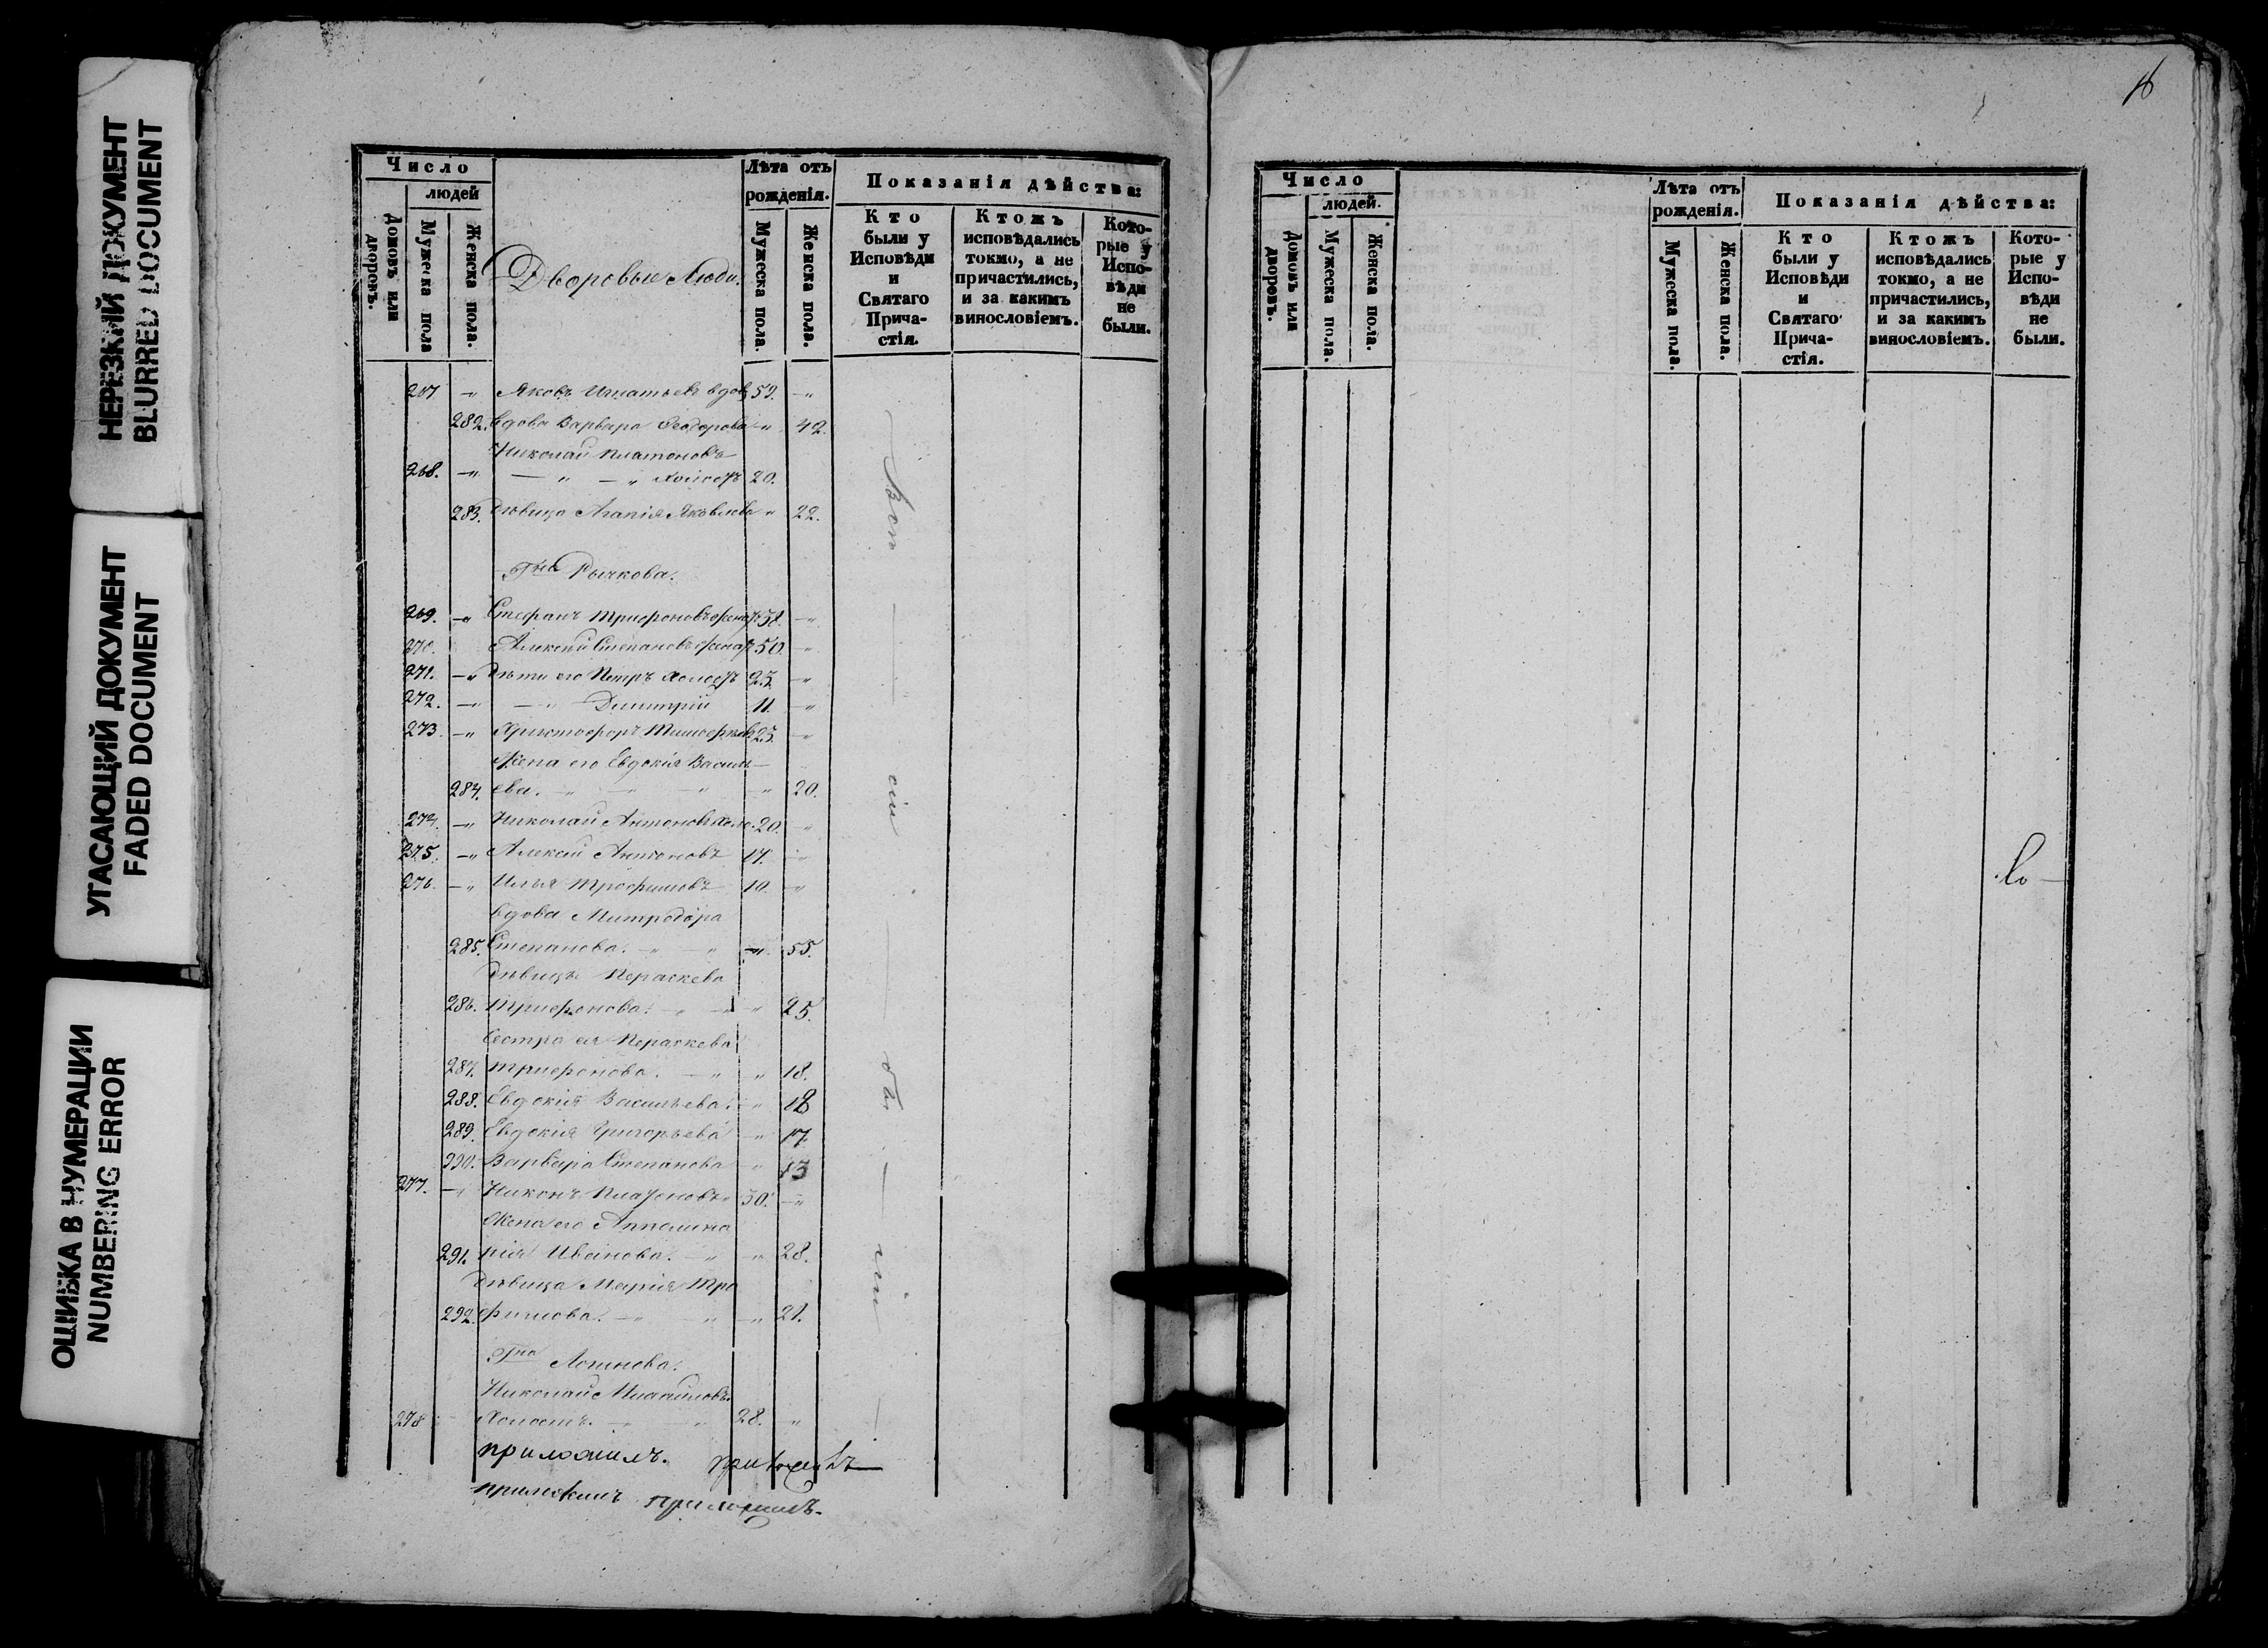 НЕРЕЗКИЙ ДОКУМЕНТ
BLURRED DOCUMENT
УГАСАЮЩИЙ ДОКУМЕНТ
FADED DOCUMENT
ОШИБКА В НУМЕРАЦИИ
NUMBERING ERROR
Число
людей
Домовъ или дворовъ.
Мужеска пола
Женска пола.
Дворовые Люди.
Лѣта отъ рожденія.
Мужеска пола.
Женска пола.
Показанія дѣйства:
Кто были у Исповѣди и Святаго Прича-стія.
Ктожъ исповѣдались токмо, а не причастились, и за какимъ винословіемъ.
Кото-рые у Испо-вѣди не были.
267 -" Яковъ Игнатьевъ вдов 59. -"
282. Вдова Варвара Феодорова -" 42.
Николай Платоновъ
268. -" — " — " Холостъ 20.
283. Дѣвица Агапія Яковлева " 22.
Рычкова.
269. -" Стефанъ Трифоновъ женатъ 58. -"
270. Алексѣй Степановъ женатъ 50. -"
271. -" Дѣти его Петръ Холостъ 25. -"
272. -" -" Димитрій 11. -"
273. -" Христофоръ 25. -"
Жена его Евдокія Василь-
284. ева. -" — " -" 20.
274. -" Николай Антоновъ Холо. 20. -"
275. -" Алексій Антоновъ 17. -"
276. -" Илья Трофимовъ 10. -"
Вдова Митродора
285. Степанова. -" -" -" 55.
Дѣвица Параскева
286. Трифонова. -" -" " 25.
Сестра ея Параскева
287. Трифонова. -" " 18.
288. Евдокія Васильева. -" 18
289. Евдокія Григорьева -" 17.
290. Варвара Степанова " 13
277. -" Никонъ Платоновъ 30. -"
Жена его Апполина
291. рія Иванова. -" " 28.
Дѣвица Марія Тро
292. фимова. -" " -" 21.
Логинова.
Николай
278 Холостъ. -" " 28. "
приложилъ. приложилъ
приложилъ приложилъ.
16
Число
людей.
Домовъ или дворовъ.
Мужеска пола.
Женска пола.
Лѣта отъ рожденія.
Мужеска пола.
Женска пола.
Показанія дѣйства:
Кто были у Исповѣди и Святаго Прича-стія.
Ктожъ исповѣдались токмо, а не причастились, и за какимъ винословіемъ.
Кото-рые у Испо-вѣди не были.